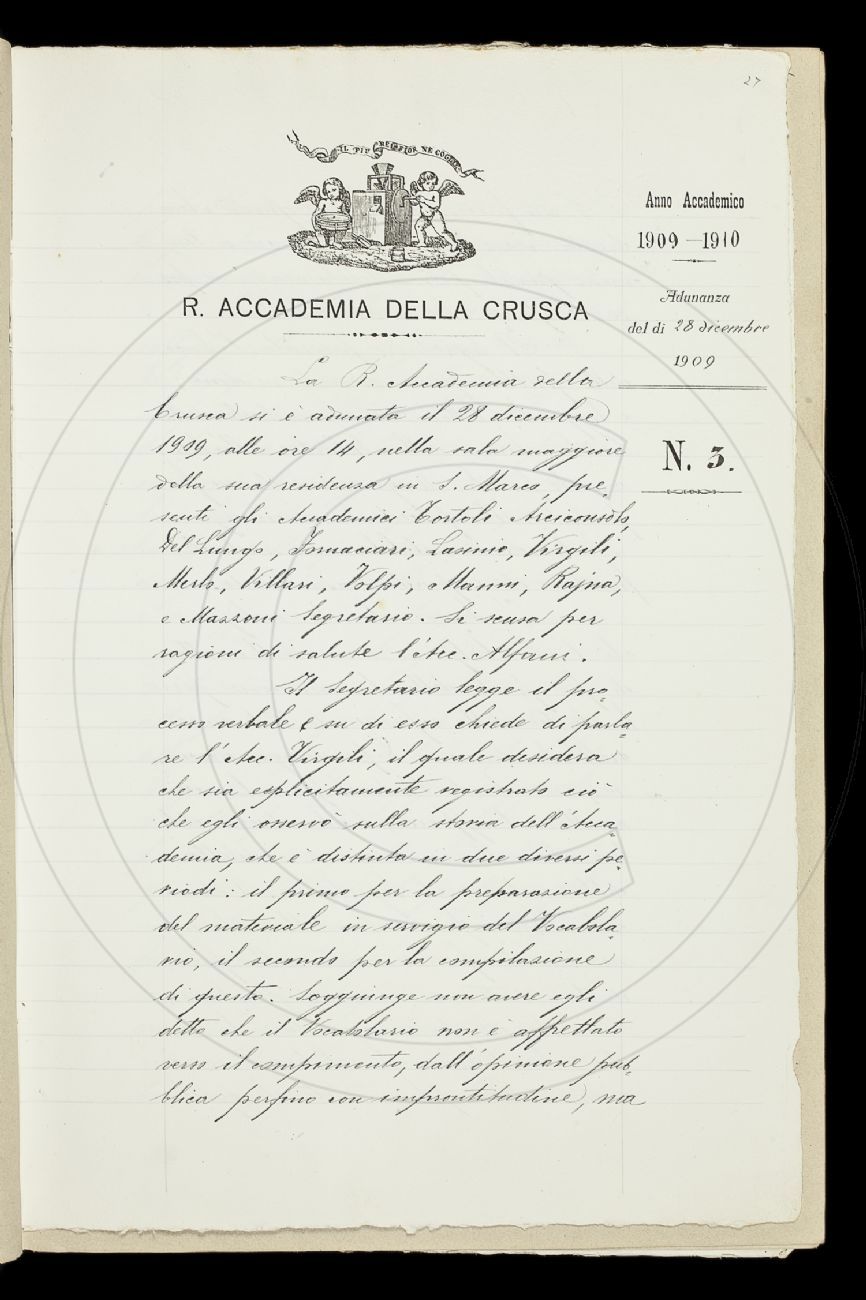 27
IL PIÙ BEL FIOR NE COGLIE
Anno Accademico
1909-1910
Adunanza
del dì 28 dicembre
1909
R. ACCADEMIA DELLA CRUSCA
N. 3.
La R. Accademia della
Crusca si è adunata il 28 dicembre
1909, alle ore 14, nella sala maggiore
della sua residenza in S. Marco, pre-
senti gli Accademici Tortoli Arciconsolo,
Del Lungo, Fornaciari, Lasinio, Virgili,
Merlo, Villari, Volpi, Manni, Rajna,
e Mazzoni Segretario. Si scusa per
ragioni di salute l'Acc. Alfani.
Il Segretario legge il pro-
cesso verbale e su di esso chiede di parla-
re l'Acc. Virgili, il quale desidera
che sia esplicitamente registrato ciò
che egli osservò sulla storia dell'Acca-
demia, che è distinta in due diversi pe-
riodi: il primo per la preparazione
del materiale in servigio del Vocabola-
rio, il secondo per la compilazione
di questo. Soggiunge non avere egli
detto che il Vocabolario non è affrettato
verso il compimento, dall'opinione pub-
blica perfino con improntitudine, ma